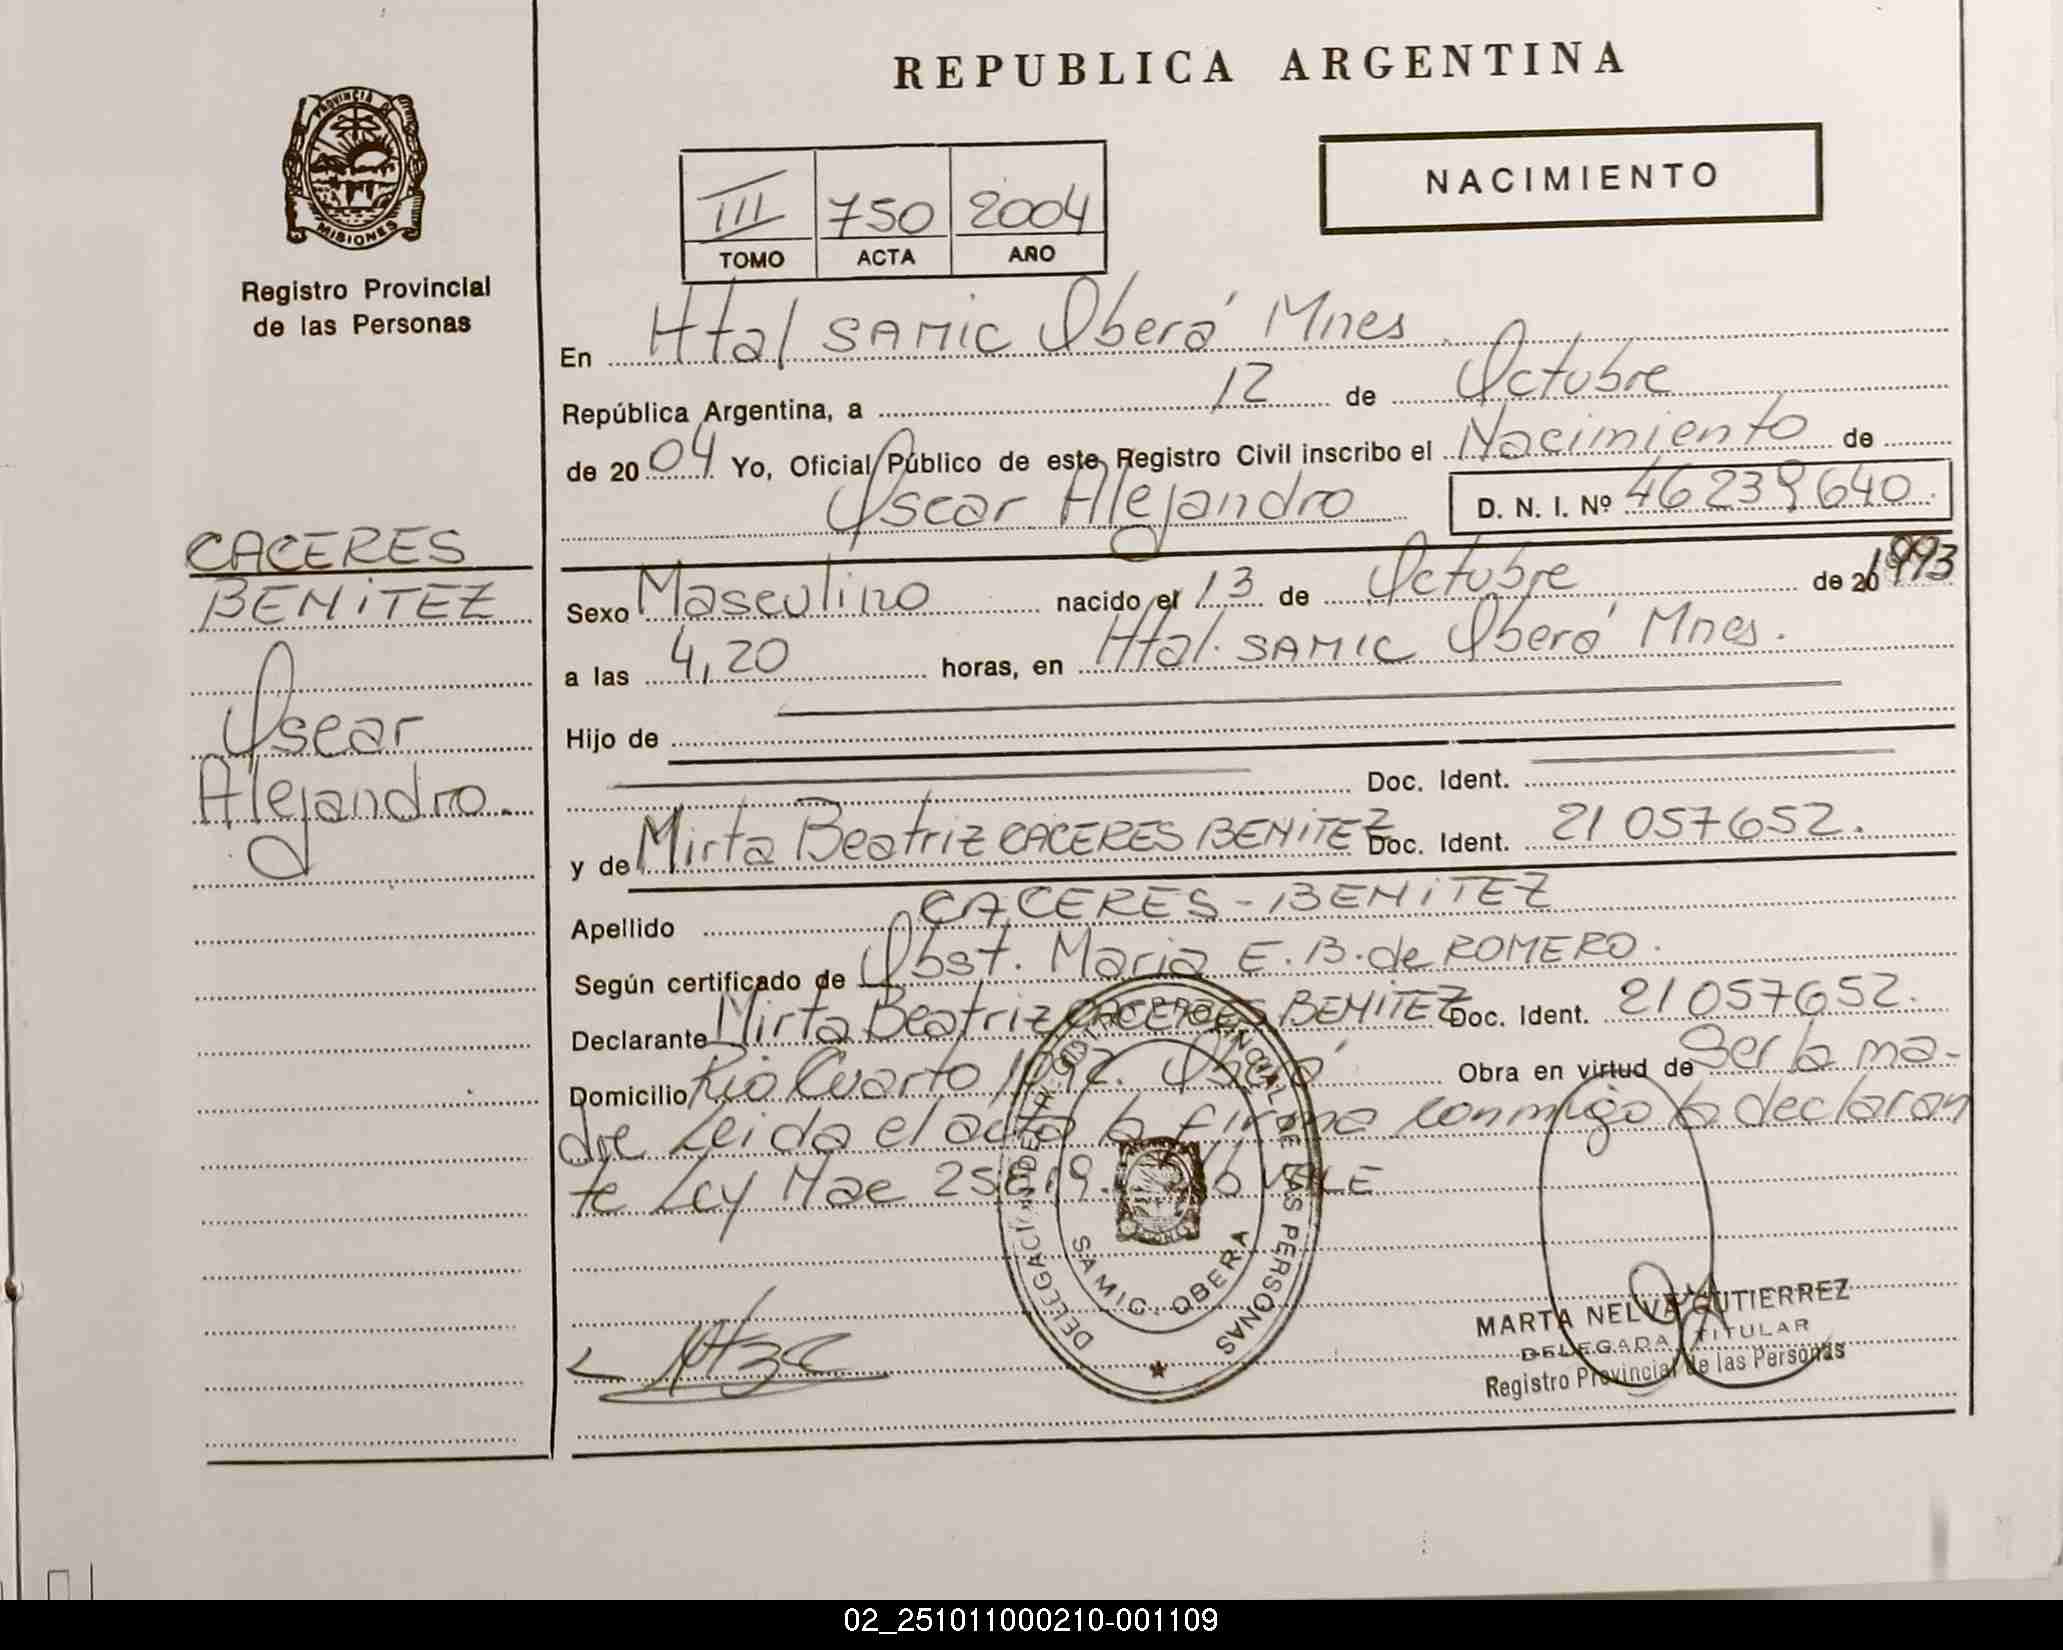 REPUBLICA ARGENTINA
PROVINCIA DE MISIONES
Registro Provincial
de las Personas
III 750 2004
TOMO ACTA AÑO
NACIMIENTO
En Htal SAMIC Oberá Mnes
República Argentina, a 12 de Octubre
de 2004 Yo, Oficial Público de este Registro Civil inscribo el Nacimiento de
Oscar Alejandro D. N. I. Nº 46239640
CACERES
BENITEZ
Oscar
Alejandro.
Sexo Masculino nacido el 13 de Octubre de 20 1993
a las 4,20 horas, en Htal. SAMIC Oberá Mnes.
Hijo de
Doc. Ident.
y de Mirta Beatriz CACERES BENITEZ Doc. Ident. 21057652.
Apellido CACERES-BENITEZ
Según certificado de Obst. Maria E. B. de ROMERO.
Declarante Mirta Beatriz CACERES BENITEZ Doc. Ident. 21057652.
Domicilio Rio Cuarto Oberá Obra en virtud de Ser la ma-
dre Leida el acta la firma conmigo la declaran
te Ley Nac VALE
DELEGACION REGISTRO PROVINCIAL DE LAS PERSONAS
SAMIC. OBERA
MARTA NELVA GUTIERREZ
DELEGADA TITULAR
Registro Provincial de las Personas
02_251011000210-001109